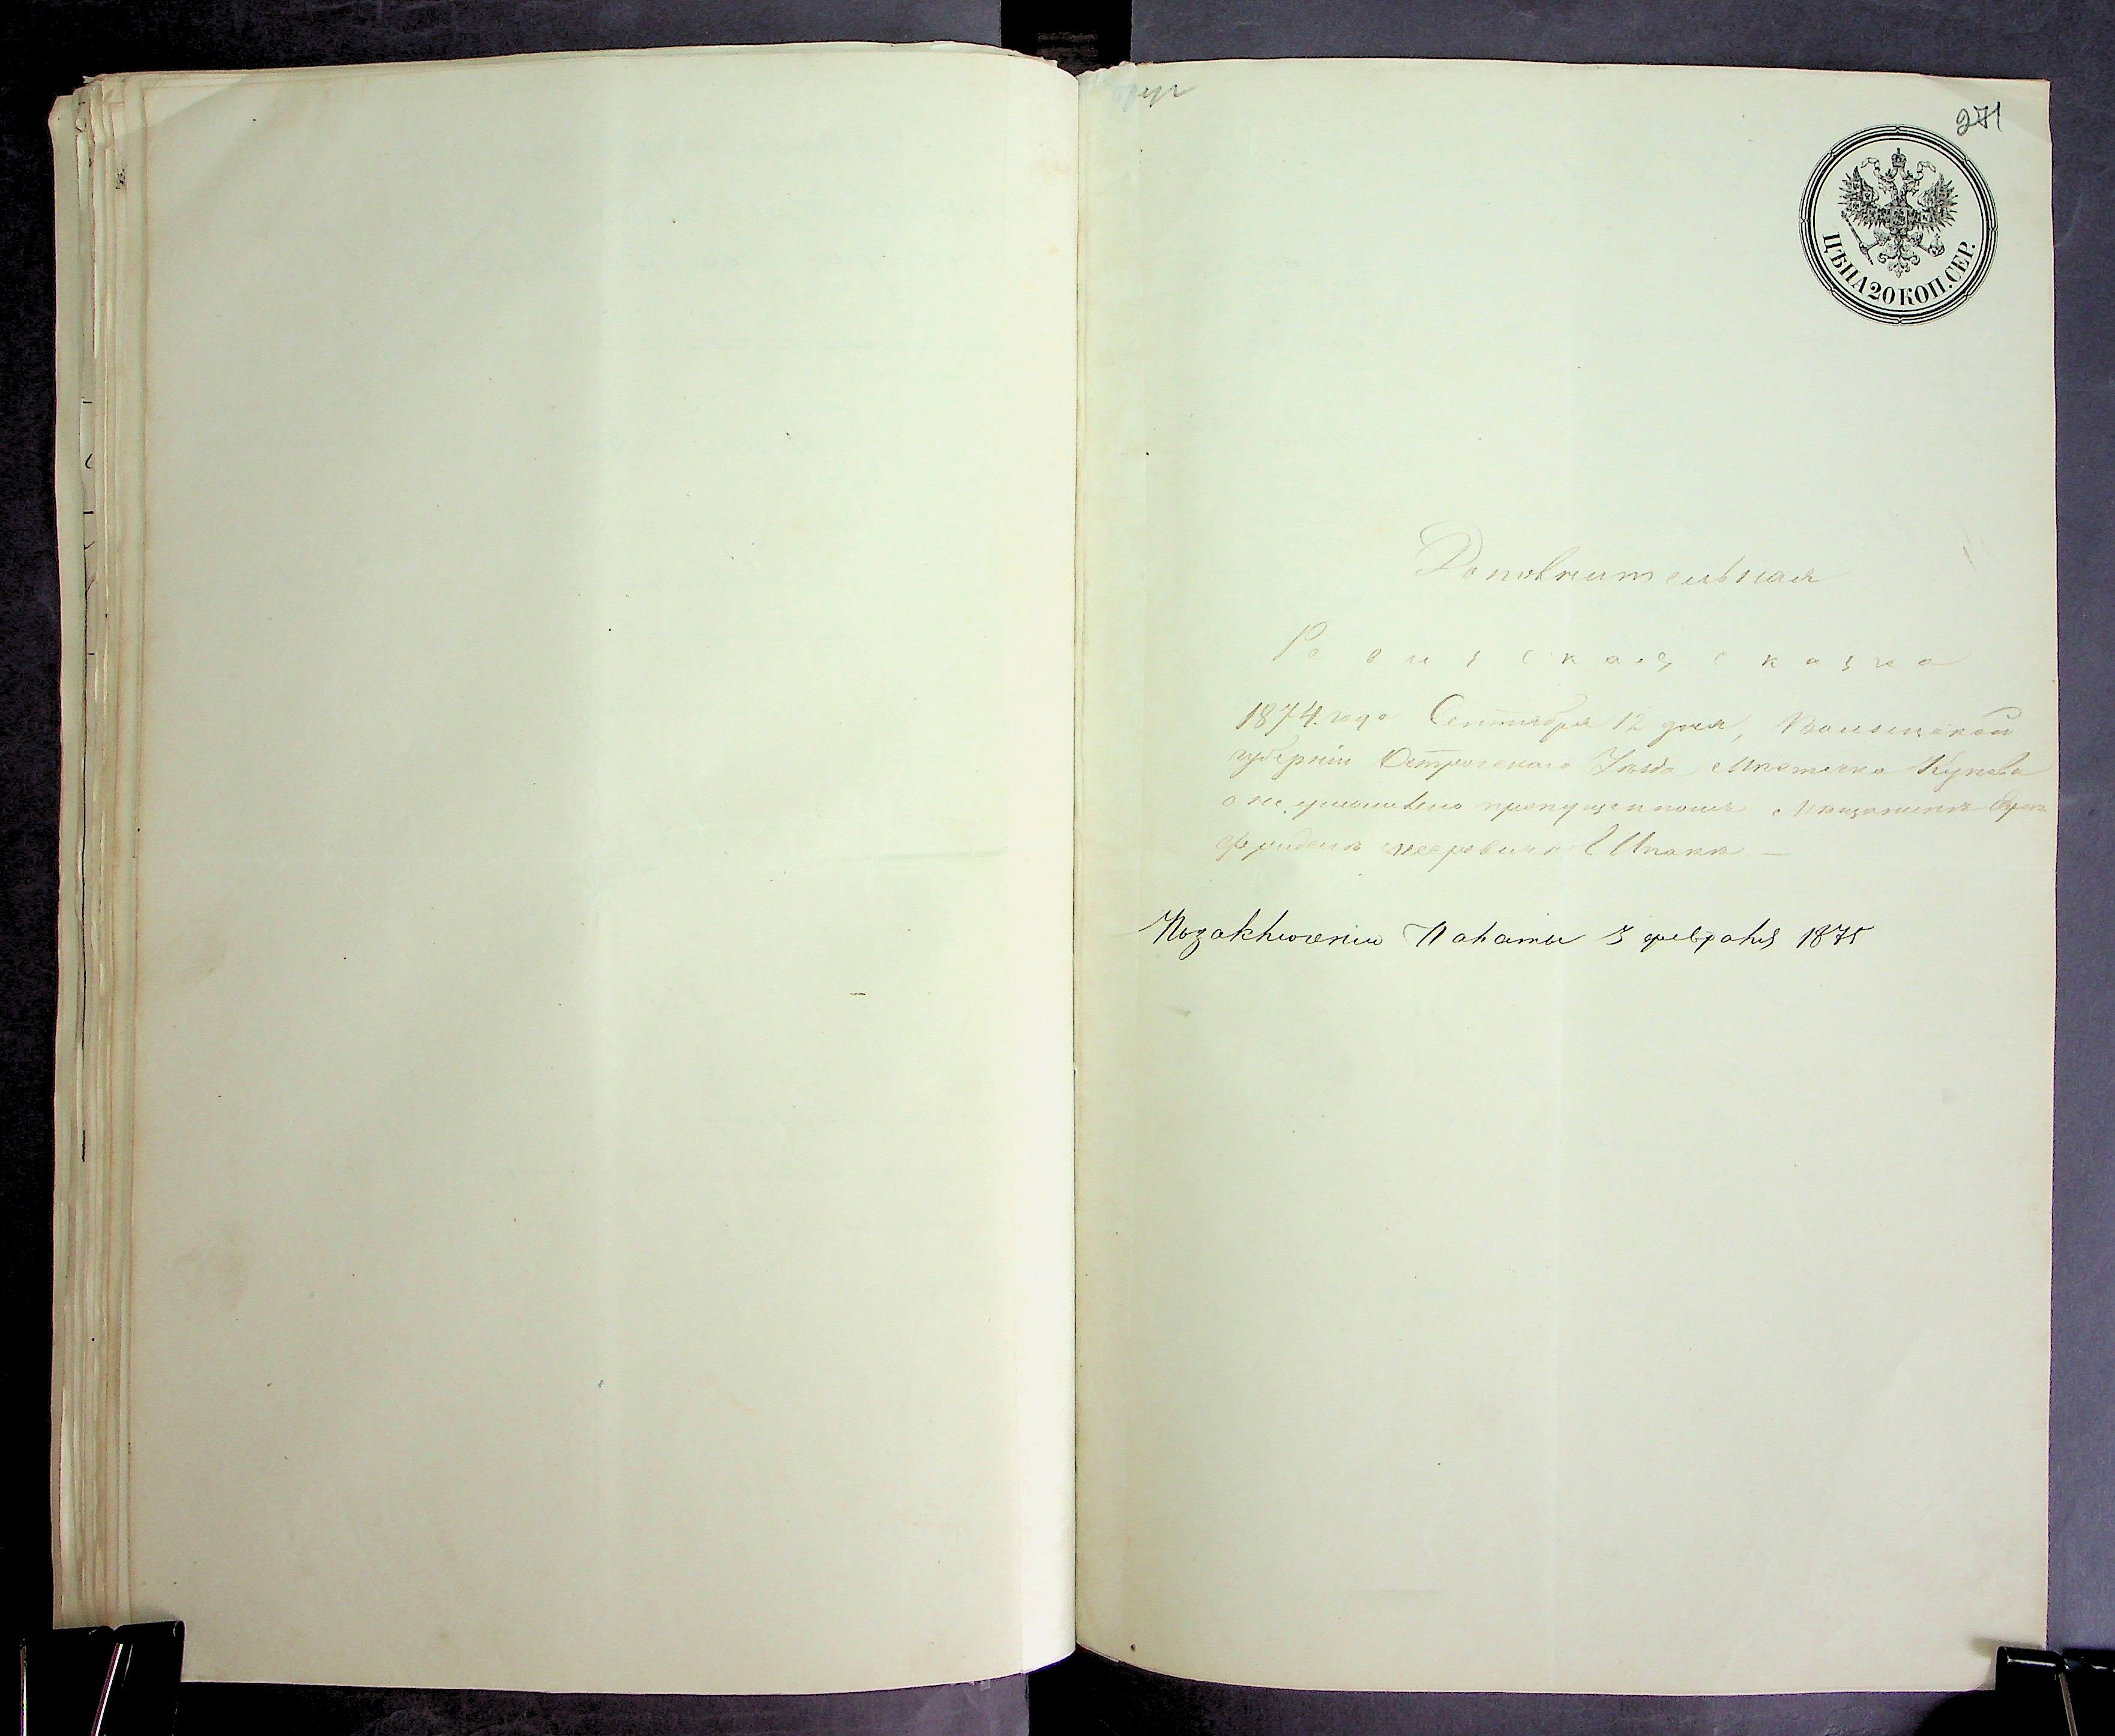 271
ЦѢНА 20 КОП. СЕР.
Дополнительная
Ревизская сказка
1874. года Сентября 12 дня, Волынской
губерніи Острогскаго Уѣзда Мѣстечка Кунева
о не умышленно пропущенномъ Мѣщанинѣ
Шпакѣ
По заключенію Палаты 3 февраля 1875